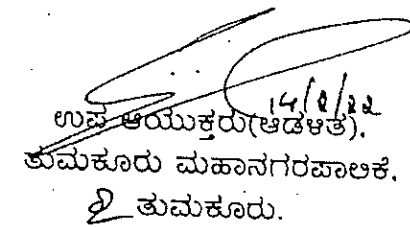 14/8/22
ಉಪ ಆಯುಕ್ತರು(ಆಡಳಿತ).
ತುಮಕೂರು ಮಹಾನಗರಪಾಲಿಕೆ.
ತುಮಕೂರು.